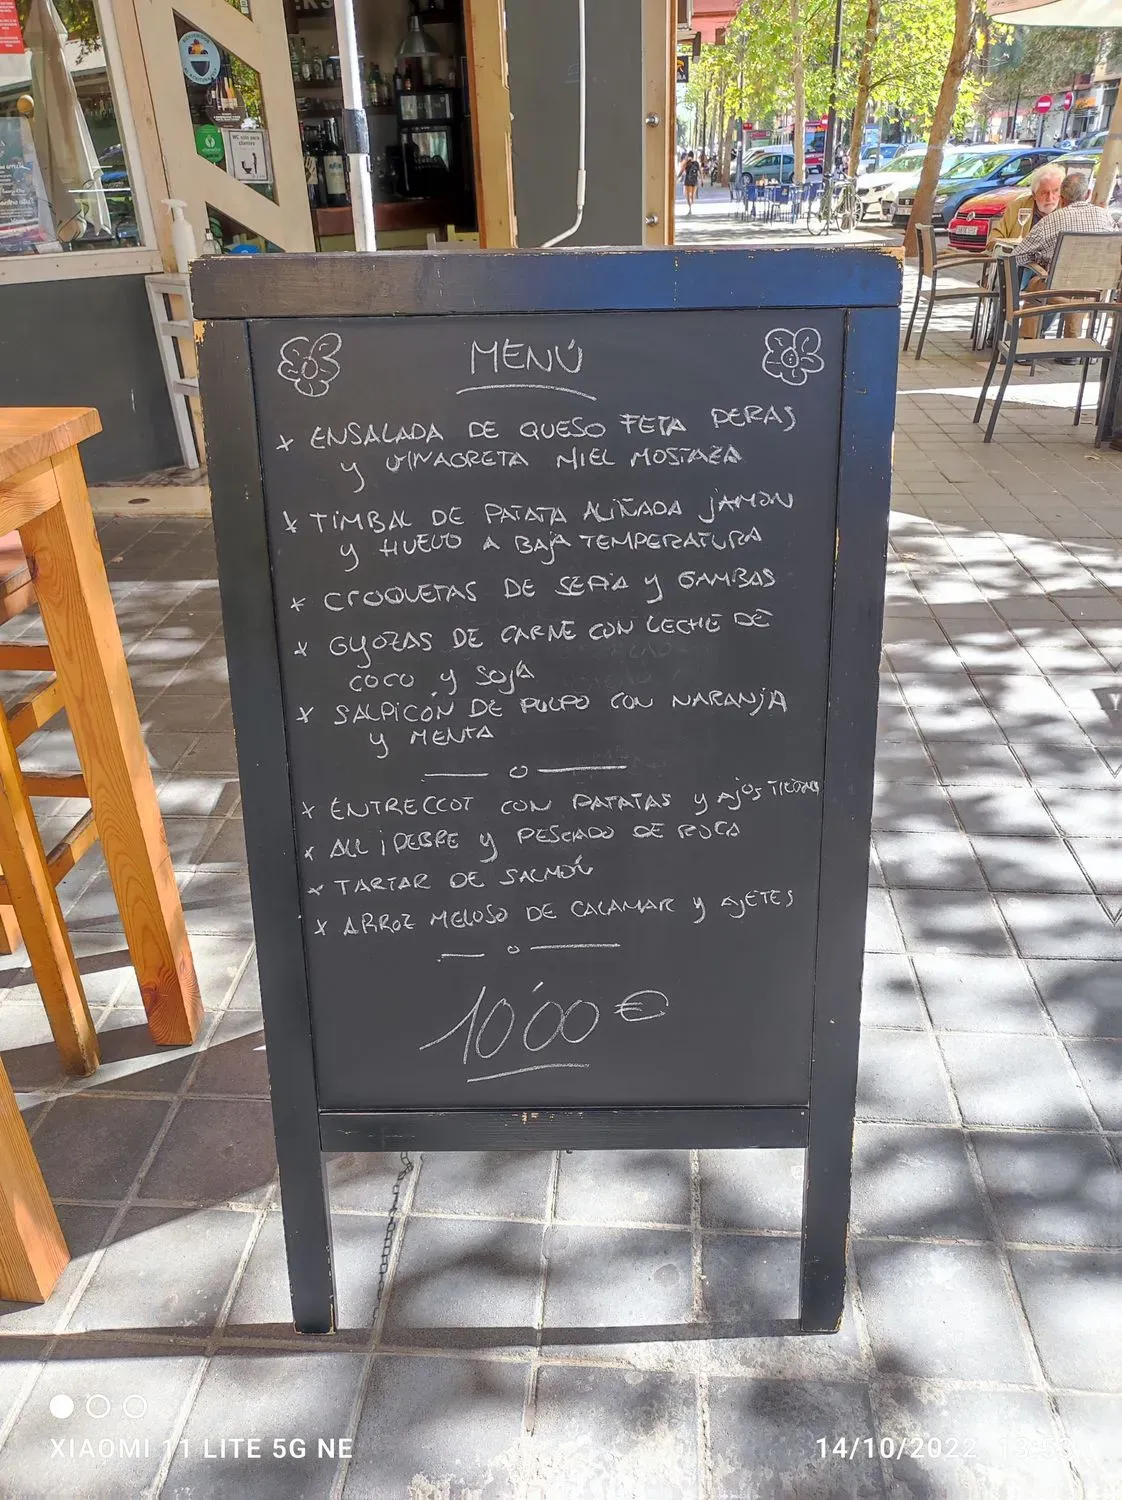 MENÚ
ENSALADA DE QUESO FETA PERAS
y VINAGRETA MIEL MOSTAZA
TIMBAL DE PATATA ALIÑADA JAMON
y HUEVO A BAJA TEMPERATURA
CROQUETAS DE SEPIA y GAMBAS
GYOZAS DE CARNE CON LECHE DE
COCO y SOJA
SALPICÓN DE PULPO CON NARANJA
y MENTA
ENTRECCOT CON PATATAS y AJOS TIERNOS
ALL i PEBRE y PESCADO DE ROCA
TARTAR DE SALMÓN
ARROZ MELOSO DE CALAMAR y AJETES
10'00 €
XIAOMI 11 LITE 5G NE
14/10/2022